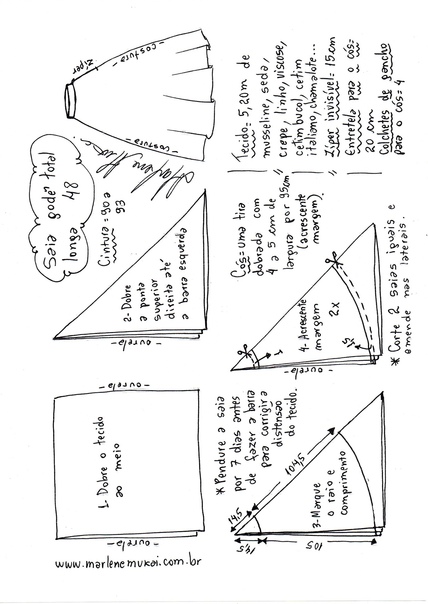 Saia godê total
longa 48
Cintura = 90 a
93
zíper
- costura -
- costura -
Tecido = 5,20m de
musseline, seda,
crepe, linho, viscose,
cetim bucol, cetim
italiano, chamalote...
Zíper invisível = 15cm
Entretela para o cós=
20 cm
Colchetes de gancho
para o cós = 4
1- Dobre o tecido
ao meio
- ourela -
- ourela -
2- Dobre
a ponta
superior
direita até
a barra esquerda
- ourela -
Cós = uma tira
dobrada com
4 a 5 cm de
largura por 95cm
(acrescente
margem)
*Pendure a saia
por 7 dias antes
de fazer a barra
para corrigir a
distensão
do tecido.
3- Marque
o raio e
comprimento
14,5
14,5
104,5
105
4- Acrescente
margem
2x
1
1,5
- ourela -
* Corte 2 saias iguais e
emende nas laterais.
www.marlenemukai.com.br